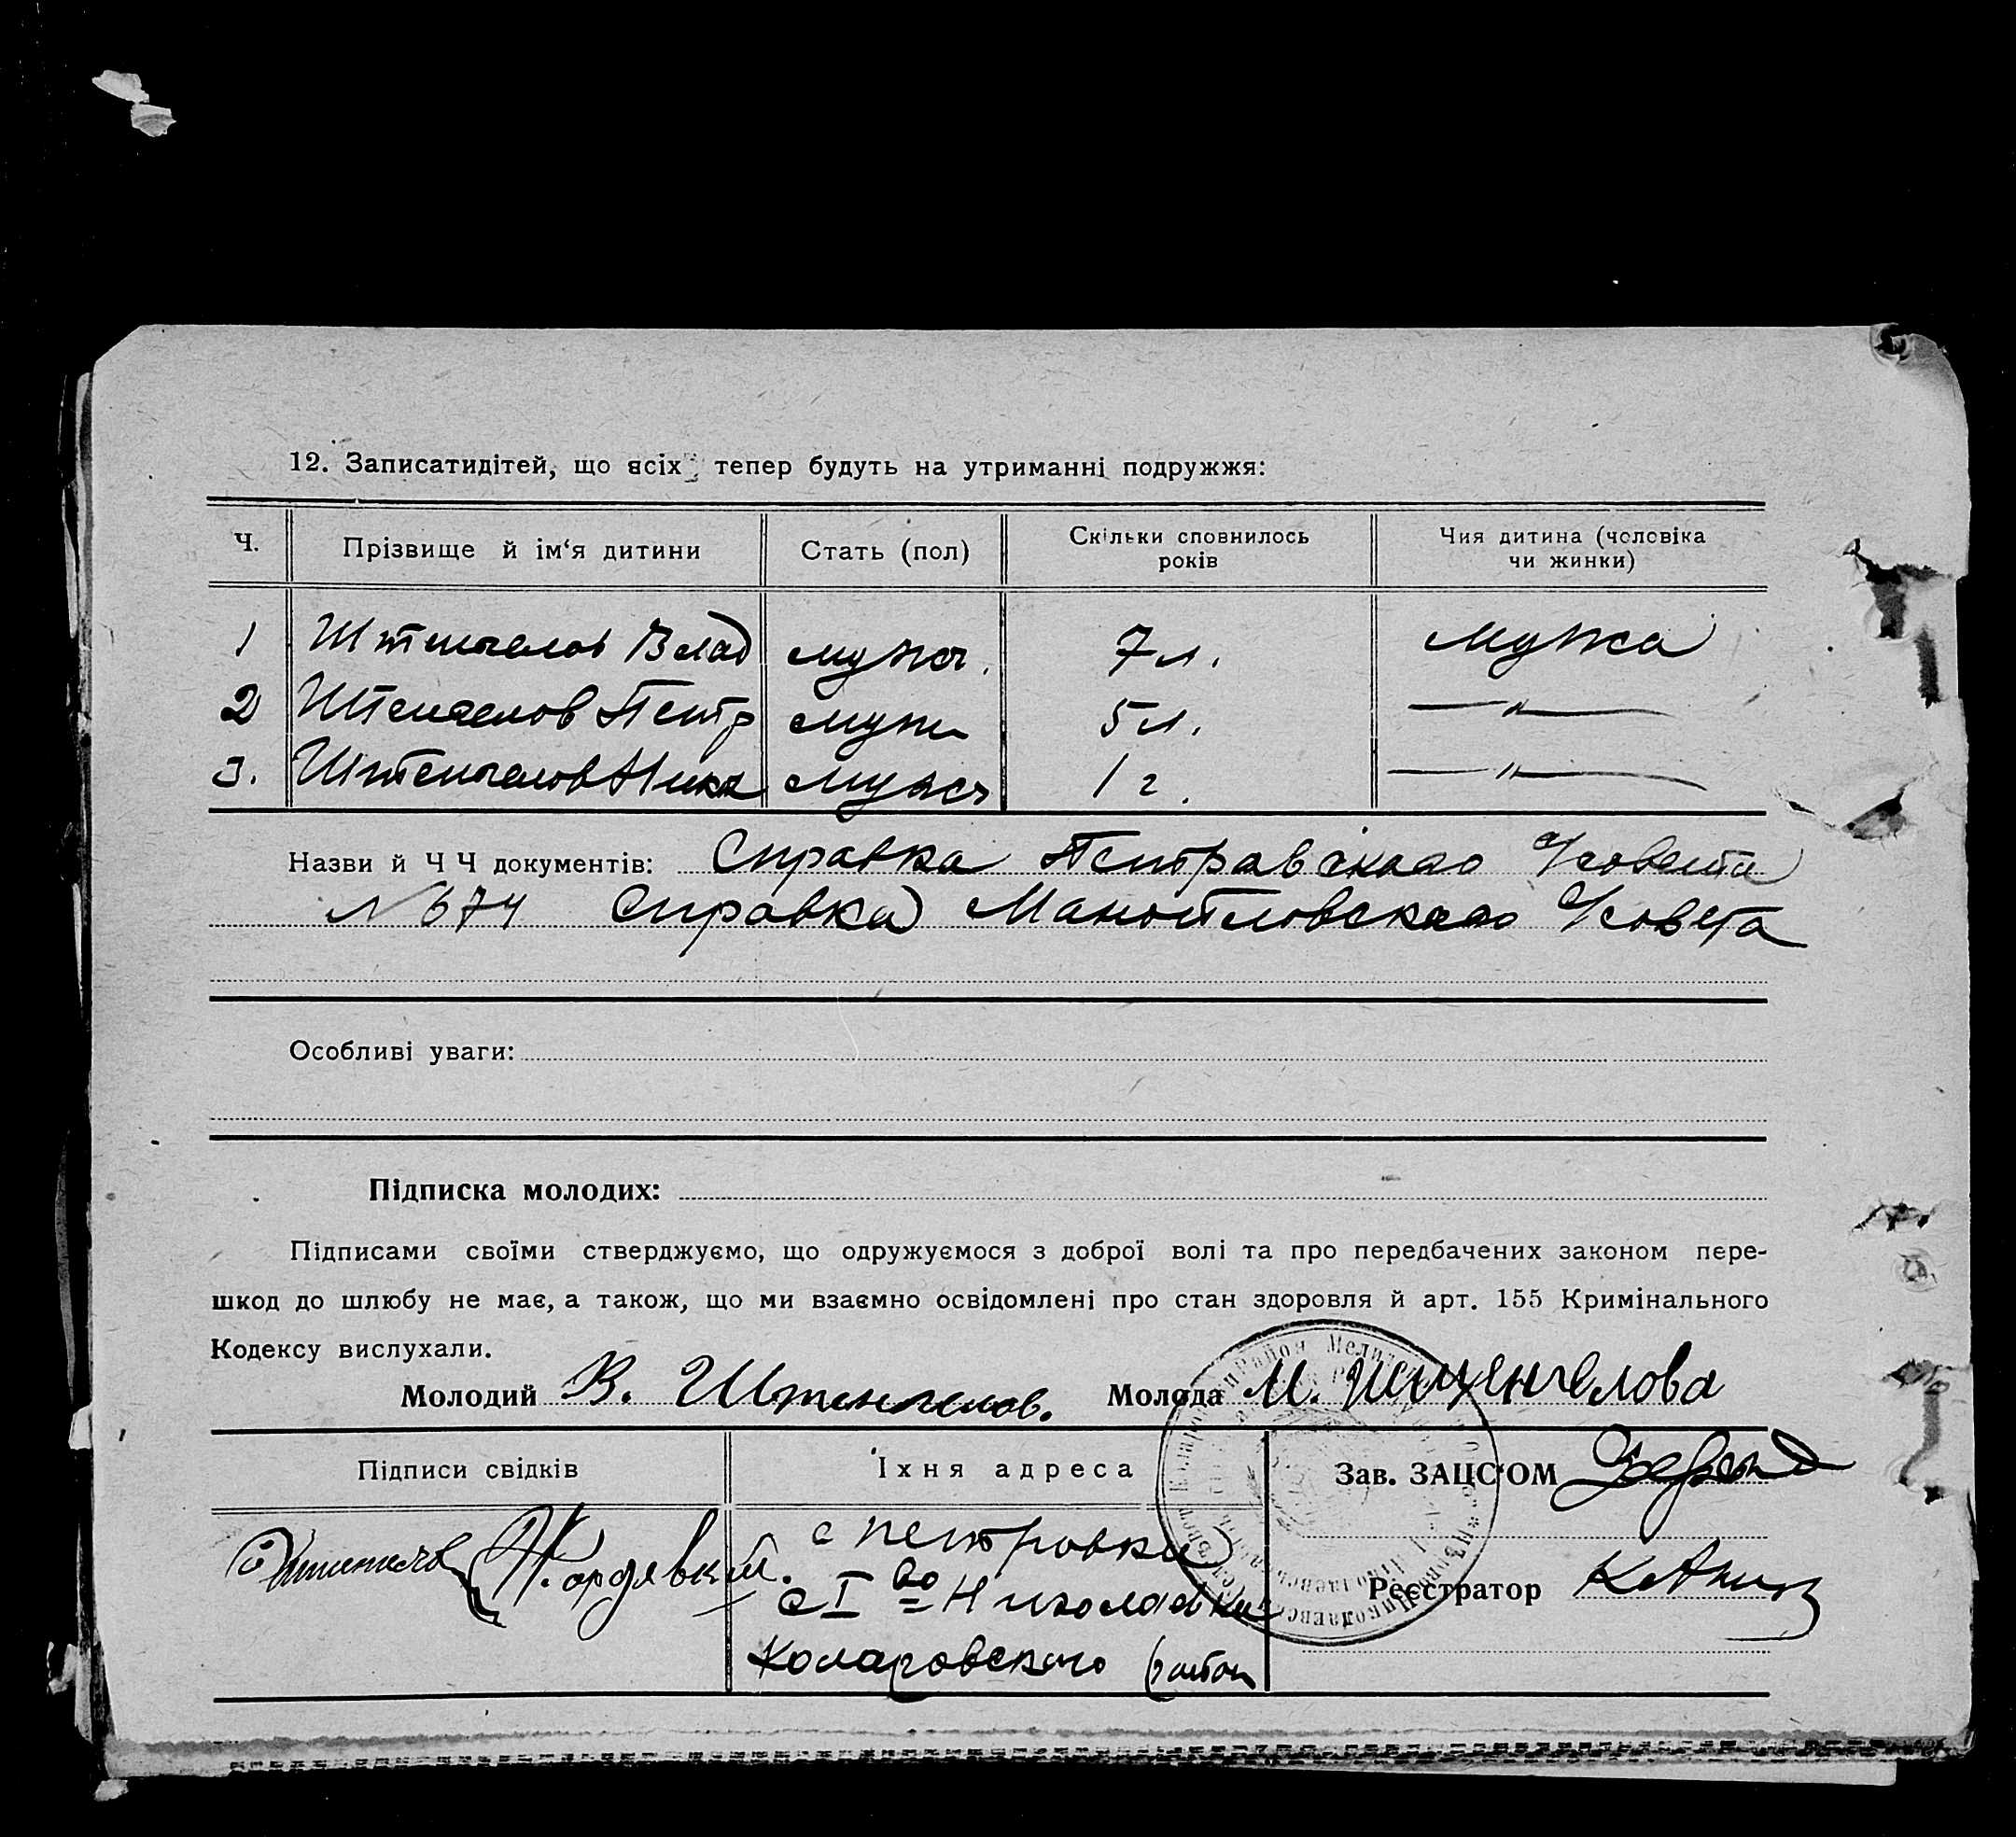 12. Записатидітей, що всіх тепер будуть на утриманні подружжя:
Ч. Прізвище й ім‘я дитини Стать (пол) Скільки сповнилось років Чия дитина (чоловіка чи жинки)
1 Штенгелов Влад мужск. 7 л. мужа
2 Штенгелов Петр мужс 5 л. —〃—
3. Штенгелов Ник мужск 1 г. —〃—
Назви й Ч Ч документів: Справка Петравскаго С/совета
№ 674 Справка Манойловскаго С/совета
Особливі уваги:
Підписка молодих:
Підписами своїми стверджуємо, що одружуємося з доброї волі та про передбачених законом пере-
шкод до шлюбу не має, а також, що ми взаємно освідомлені про стан здоровля й арт. 155 Кримінального
Кодексу вислухали.
Молодий В. Штенгелов. Молода М. Штенгелова
Підписи свідків Їхня адреса Зав. ЗАЦС‘ОМ
с Петровки
с I во Николаевки Реєстратор
Коларовского район